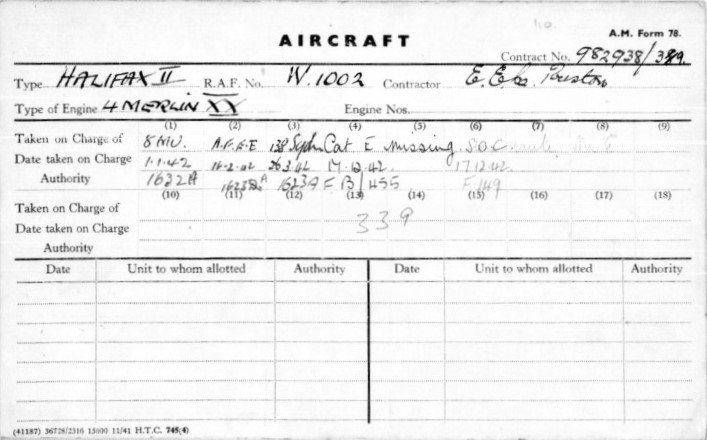 A.M. Form 78.
AIRCRAFT
Contract No. 982938/389.
Type HALIFAX II R.A.F. No. W.1002 Contractor E. E. Co. Preston
Type of Engine 4 MERLIN XX Engine Nos.
(1) (2) (3) (4) (5) (6) (7) (8) (9)
Taken on Charge of 8 MU. A.F.E.E 138 Sqdn Cat E Missing SOC
Date taken on Charge 1.1.42 16.2.42 26.3.42 17.12.42 17.12.42
Authority 1632A 1623A F B/455 F/149
(10) (11) (12) (13) (14) (15) (16) (17) (18)
Taken on Charge of
339
Date taken on Charge
Authority
Date Unit to whom allotted Authority Date Unit to whom allotted Authority
(41187) 36728/2316 15000 11/41 H.T.C. 745(4)